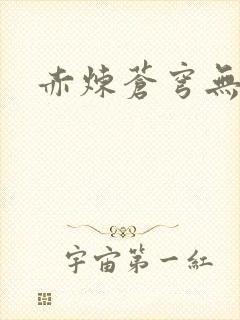 赤煉蒼穹無
宇宙第一紅